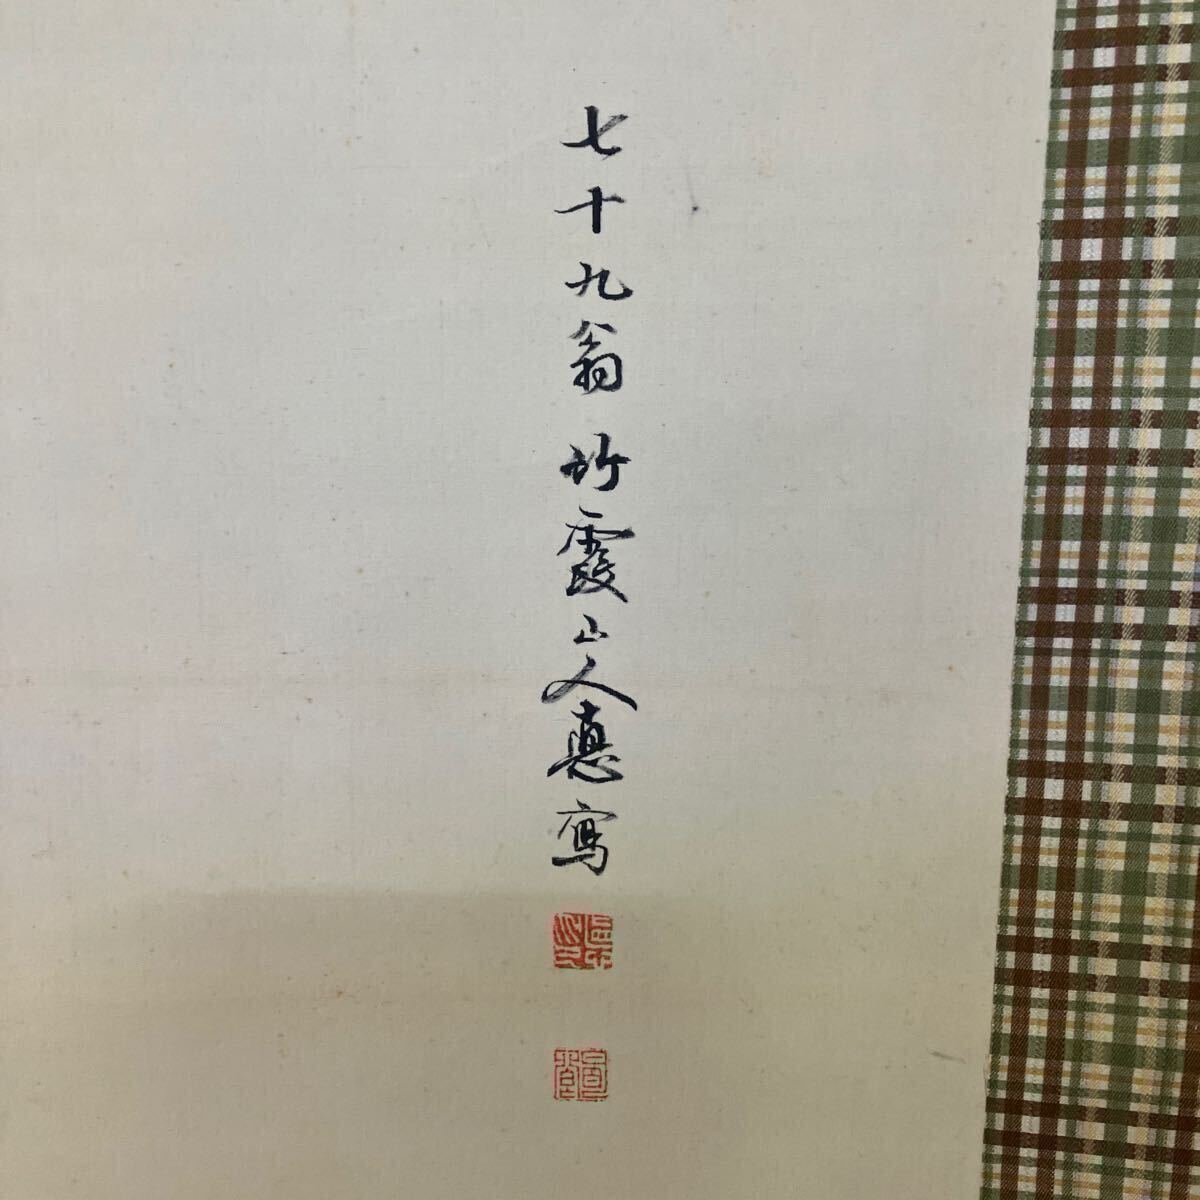 七十九翁竹霞山人悳寫